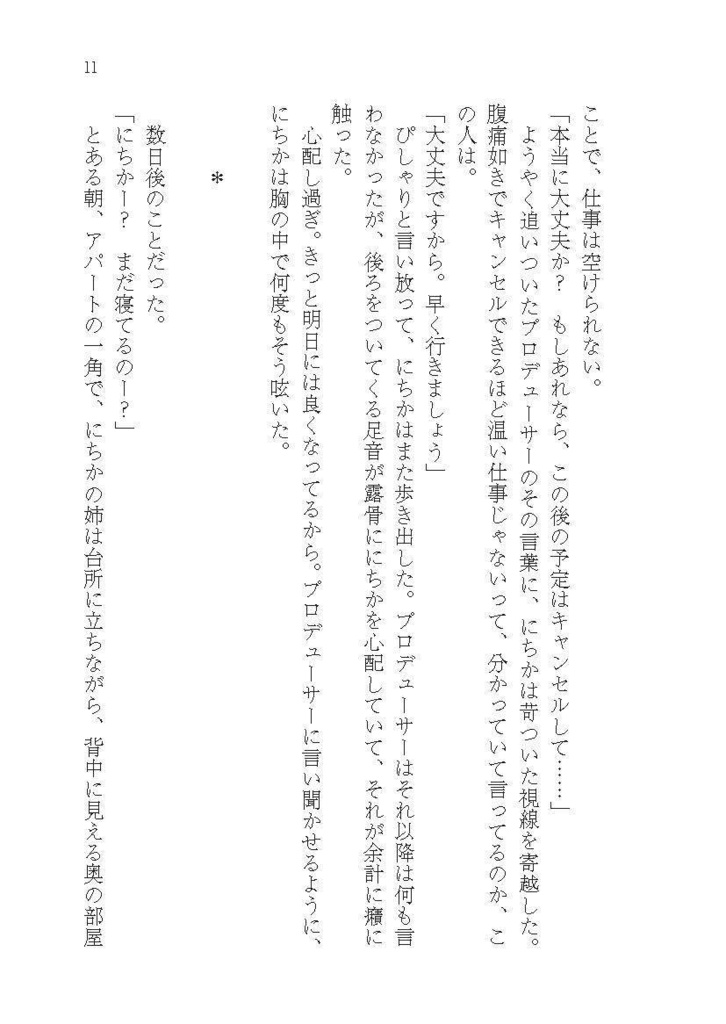 11
ことで、仕事は空けられない。
「本当に大丈夫か？　もしあれなら、この後の予定はキャンセルして……」
　ようやく追いついたプロデューサーのその言葉に、にちかは苛ついた視線を寄越した。
腹痛如きでキャンセルできるほど温い仕事じゃないって、分かっていて言ってるのか、こ
の人は。
「大丈夫ですから。早く行きましょう」
　ぴしゃりと言い放って、にちかはまた歩き出した。プロデューサーはそれ以降は何も言
わなかったが、後ろをついてくる足音が露骨ににちかを心配していて、それが余計に癪に
触った。
　心配し過ぎ。きっと明日には良くなってるから。プロデューサーに言い聞かせるように、
にちかは胸の中で何度もそう呟いた。
＊
　数日後のことだった。
「にちかー？　まだ寝てるのー？」
　とある朝、アパートの一角で、にちかの姉は台所に立ちながら、背中に見える奥の部屋